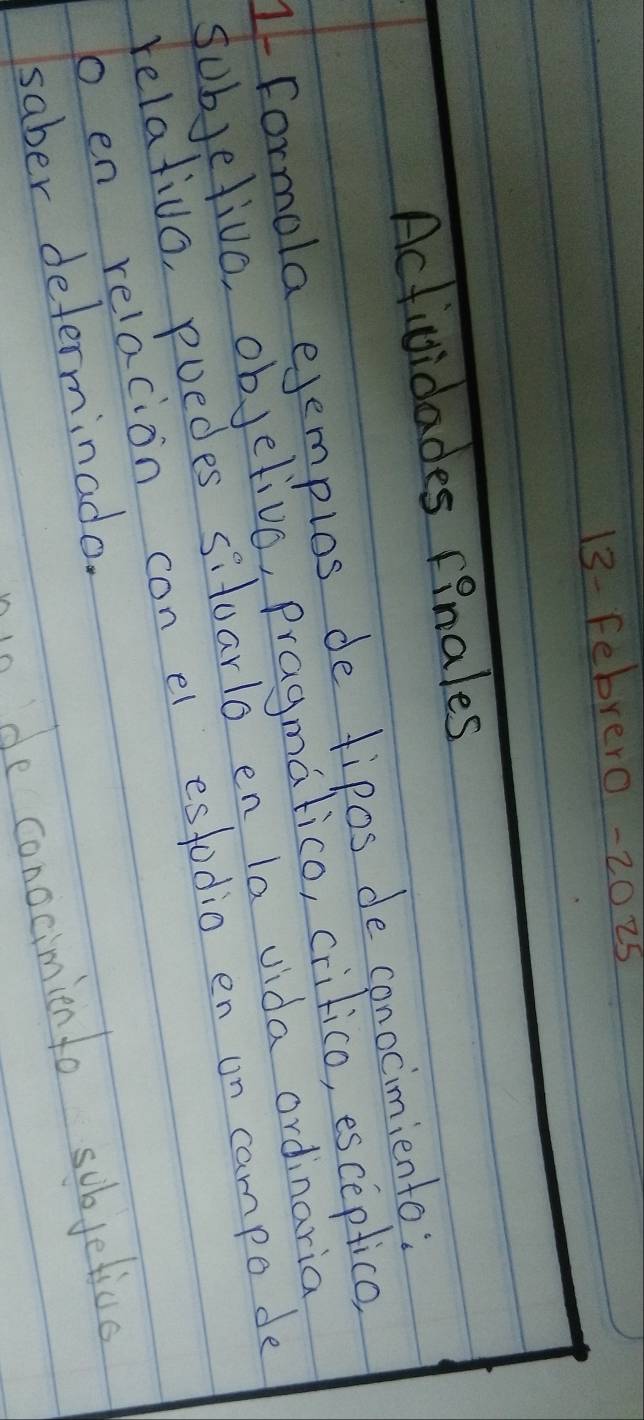 13-Febrero-2025
Actividades Finales
1- Formula ejemplos de tipos de conocimiento:
subjetivo, objetivo, pragmático, crítico, escéptico,
relativo, puedes situarlo en la vida ordinaria
o en relación con el estudio en un campo de
saber determinado.
de conocimiento subjetivo